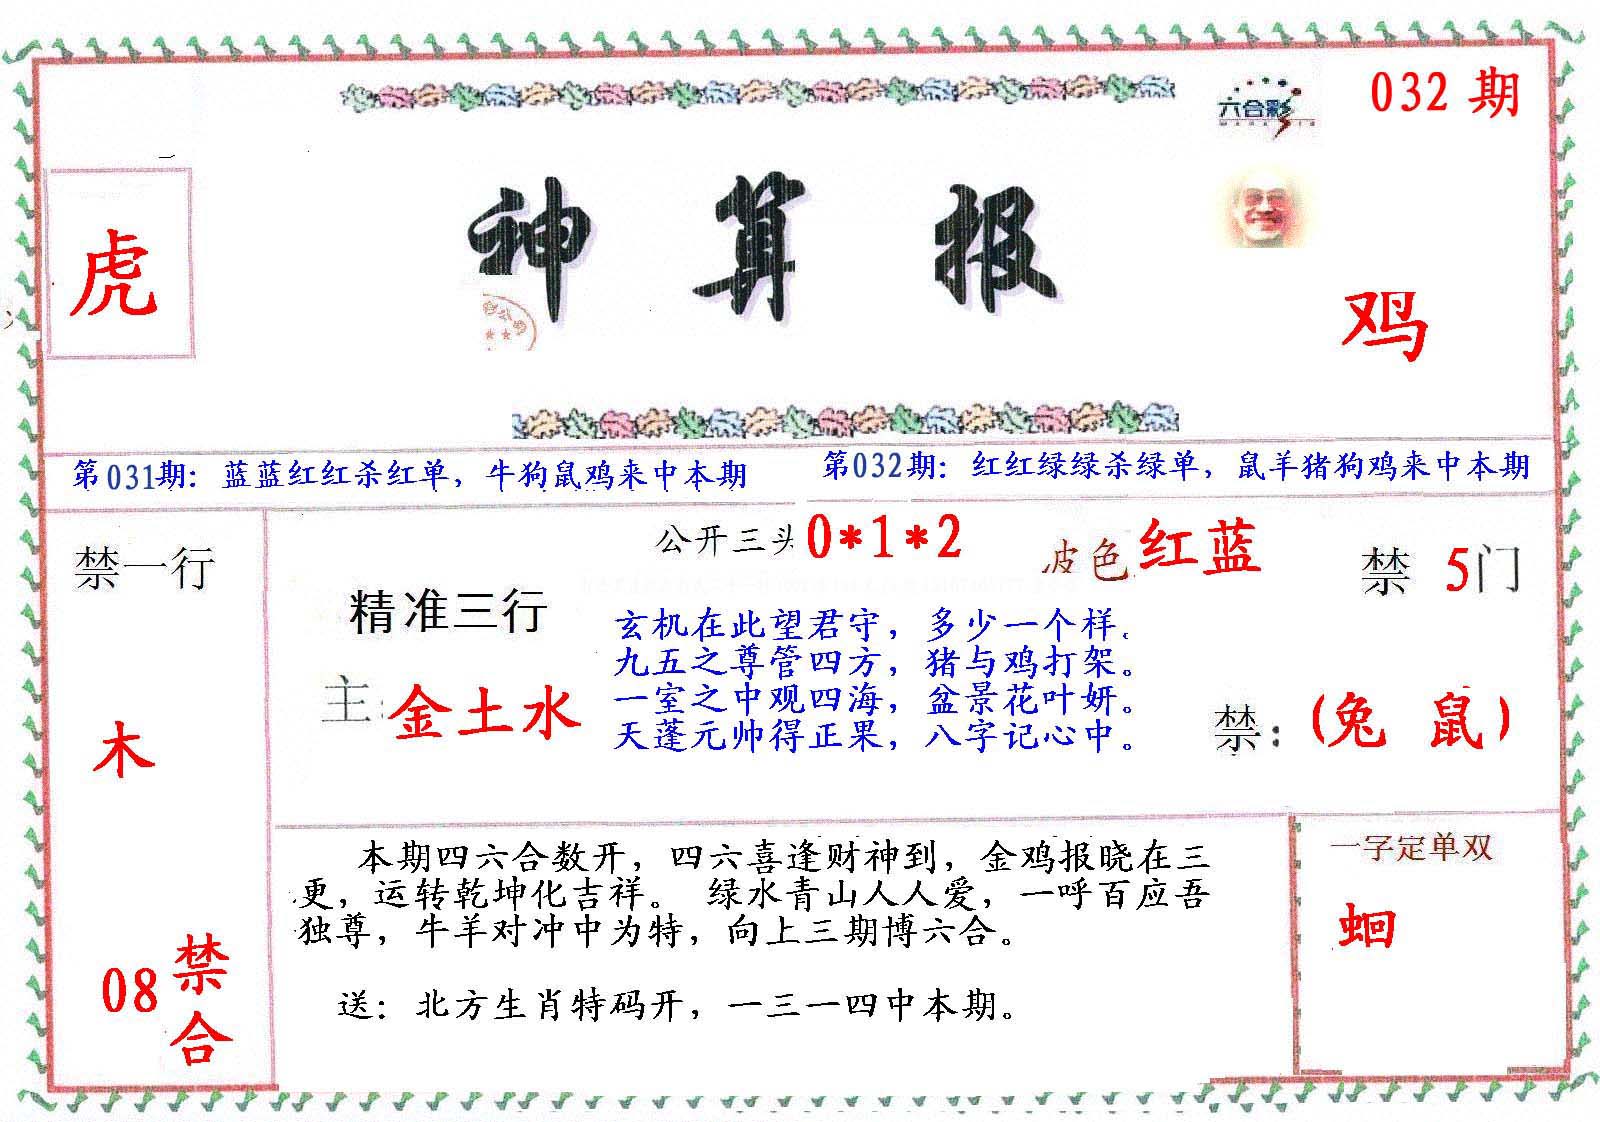 六合彩
032 期
虎
神算报
鸡
第031期：蓝蓝红红杀红单，牛狗鼠鸡来中本期
第032期：红红绿绿杀绿单，鼠羊猪狗鸡来中本期
禁一行
木
08 禁合
公开三头 0*1*2
皮色 红蓝
禁 5门
精准三行
主：金土水
玄机在此望君守，多少一个样。
九五之尊管四方，猪与鸡打架。
一室之中观四海，盆景花叶妍。
天蓬元帅得正果，八字记心中。
禁：(兔 鼠)
本期四六合数开，四六喜逢财神到，金鸡报晓在三
更，运转乾坤化吉祥。 绿水青山人人爱，一呼百应吾
独尊，牛羊对冲中为特，向上三期博六合。
送：北方生肖特码开，一三一四中本期。
一字定单双
蛔